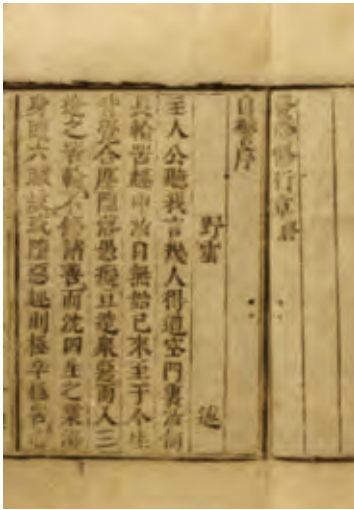 發心修行章
自警序
野雲 述
主人公聽我言幾人得道空門裏汝何
長輪苦趣中汝自無始已來至于今生
背覺合塵墮落愚癡恒造衆惡而入三
途之苦輪不修諸善而沈四生之業海
身隨六賊故或墮惡趣則極辛極苦心